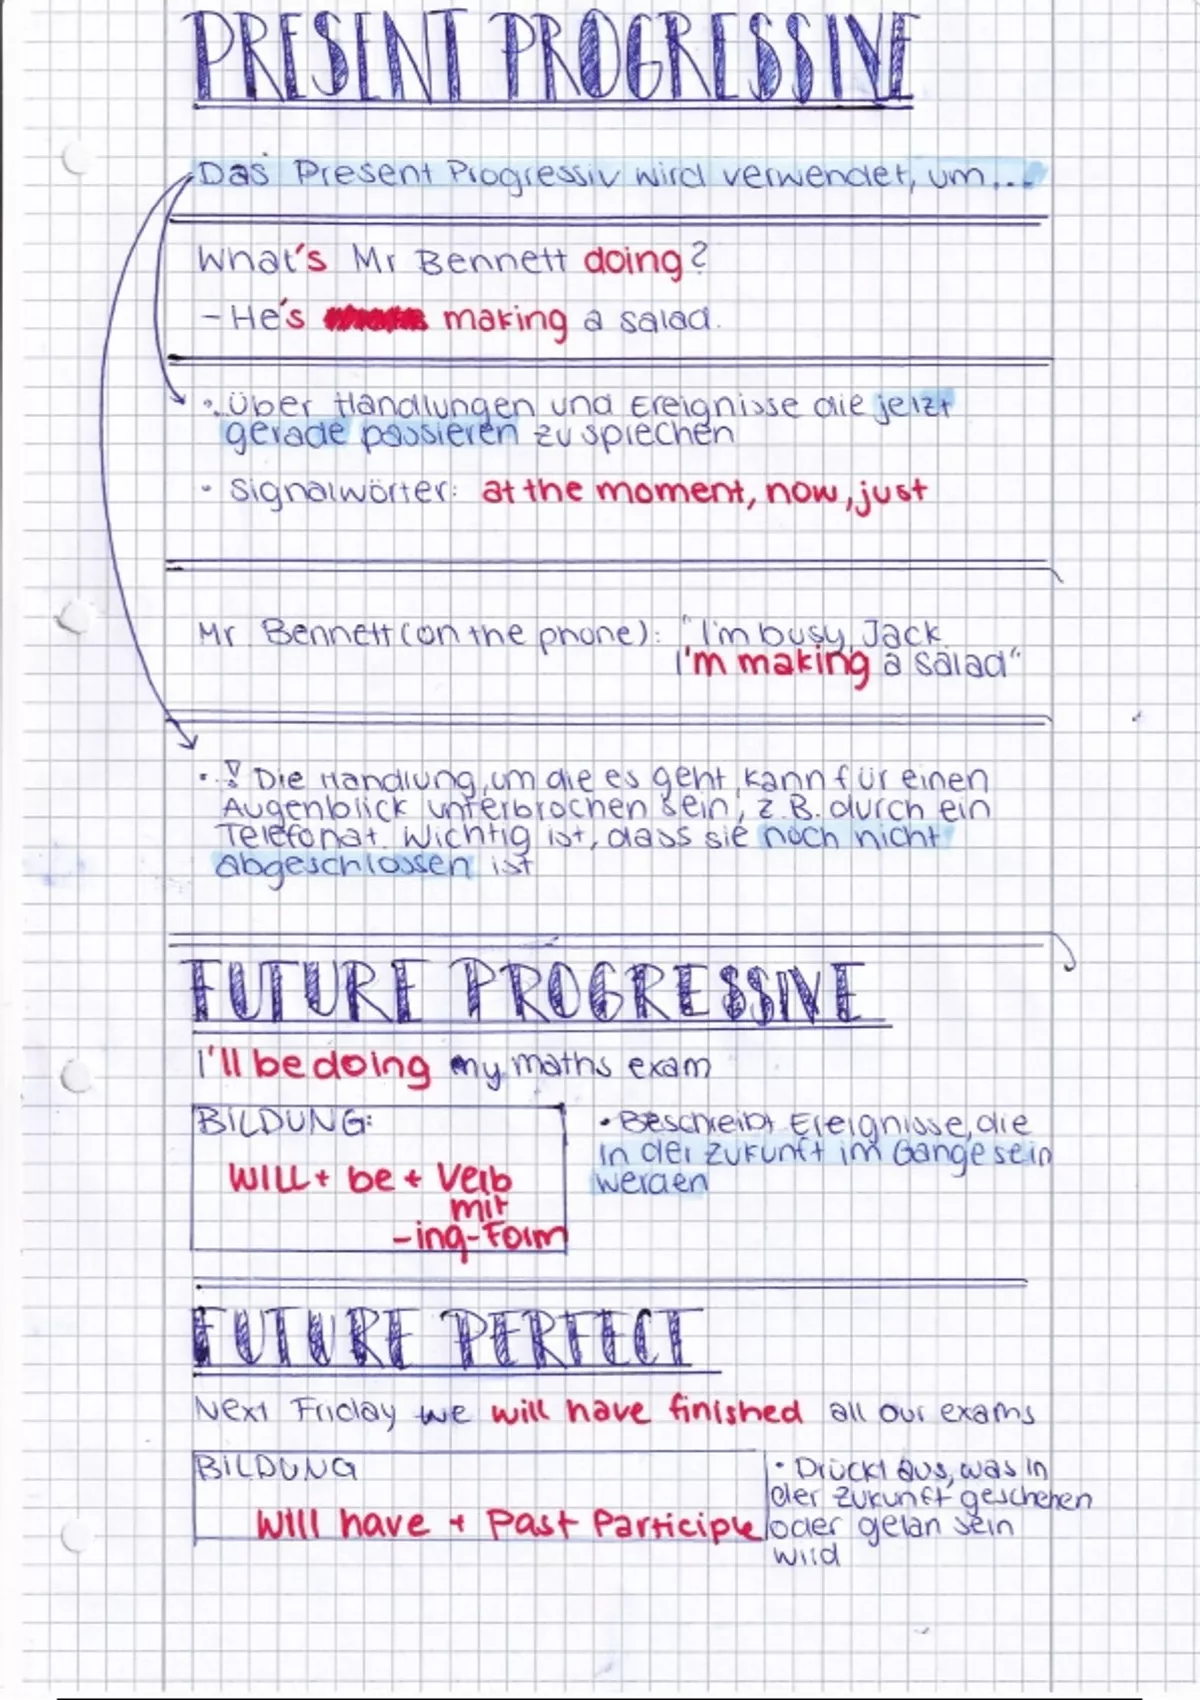 PRESENT PROGRESSIVE
Das Present Progressiv wird verwendet, um...
What's Mr Bennett doing?
- He's making a salad.
• Über Handlungen und Ereignisse die jetzt
gerade passieren zu sprechen
• Signalwörter: at the moment, now, just
Mr Bennett (on the phone): "I'm busy, Jack
I'm making a salad"
• ! Die Handlung, um die es geht, kann für einen
Augenblick unterbrochen sein, z.B. durch ein
Telefonat. Wichtig ist, dass sie noch nicht
abgeschlossen ist
FUTURE PROGRESSIVE
I'll be doing my maths exam
BILDUNG:
Will + be + Verb
mit
-ing-Form
• Beschreibt Ereignisse, die
in der Zukunft im Gange sein
werden
FUTURE PERFECT
Next Friday we will have finished all our exams
BILDUNG
Will have + Past Participle
• Drückt aus, was in
der Zukunft geschehen
oder getan sein
wird